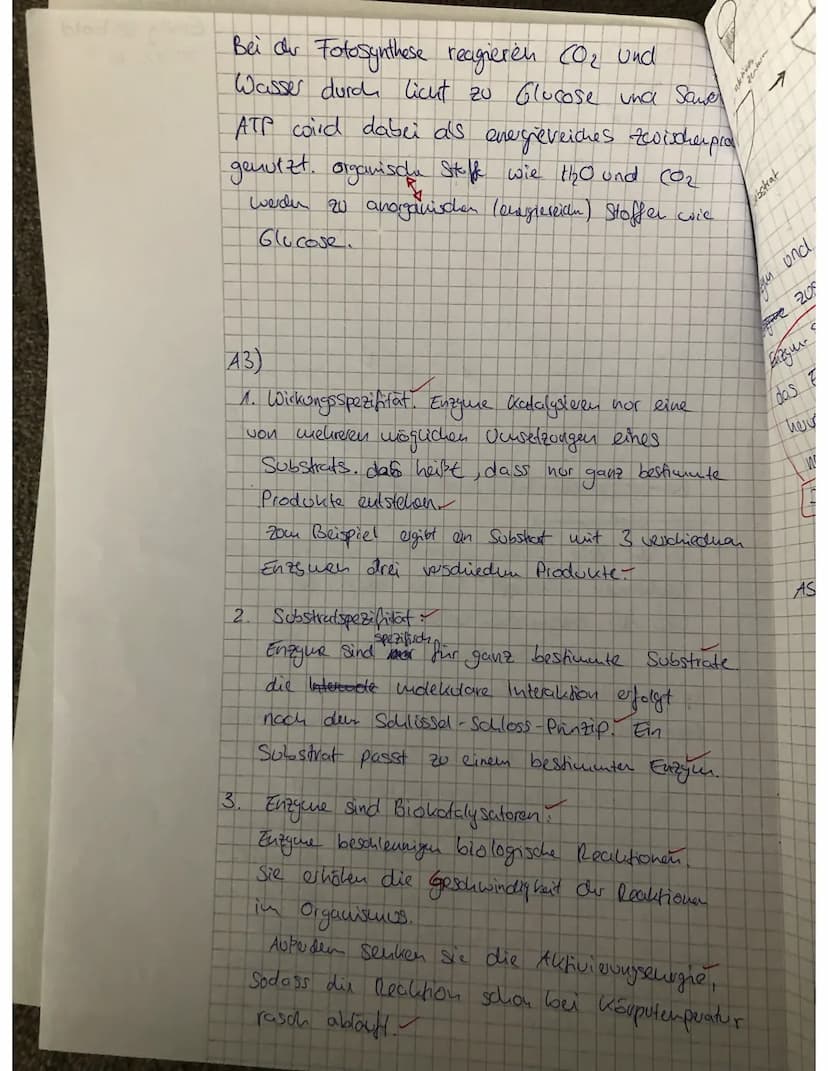 Bei der Fotosynthese reagieren CO2 und
Wasser durch licht zu Glucose und
ATP wird dabei als energiereiches
genutzt. organische Stoffe wie H2O und CO2
werden zu anorganischen (energiereichen) Stoffen wie
Glucose.
A3)
1. Wirkungsspezifität. Enzyme katalysieren nur eine
von mehreren möglichen Umsetzungen eines
Substrats. daß heißt, dass nur ganz bestimmte
Produkte entstehen.
zum Beispiel ergibt ein Substrat mit 3 verschiednen
Enzymen drei verschiedene Produkte.
2. Substratspezifität:
spezifisch
Enzyme sind für ganz bestimmte Substrate
die molekulare Interaktion erfolgt
nach dem Schlüssel-Schloss-Prinzip. Ein
Substrat passt zu einem bestimmten Enzym.
3. Enzyme sind Biokatalysatoren:
Enzyme beschleunigen biologische Reaktionen.
Sie erhöhen die Geschwindigkeit der Reaktionen
im Organismus.
Außerdem senken sie die Aktivierungsenergie,
sodass die Reaktion schon bei Körpertemperatur
rasch abläuft.
und
Enzyme
das
A5